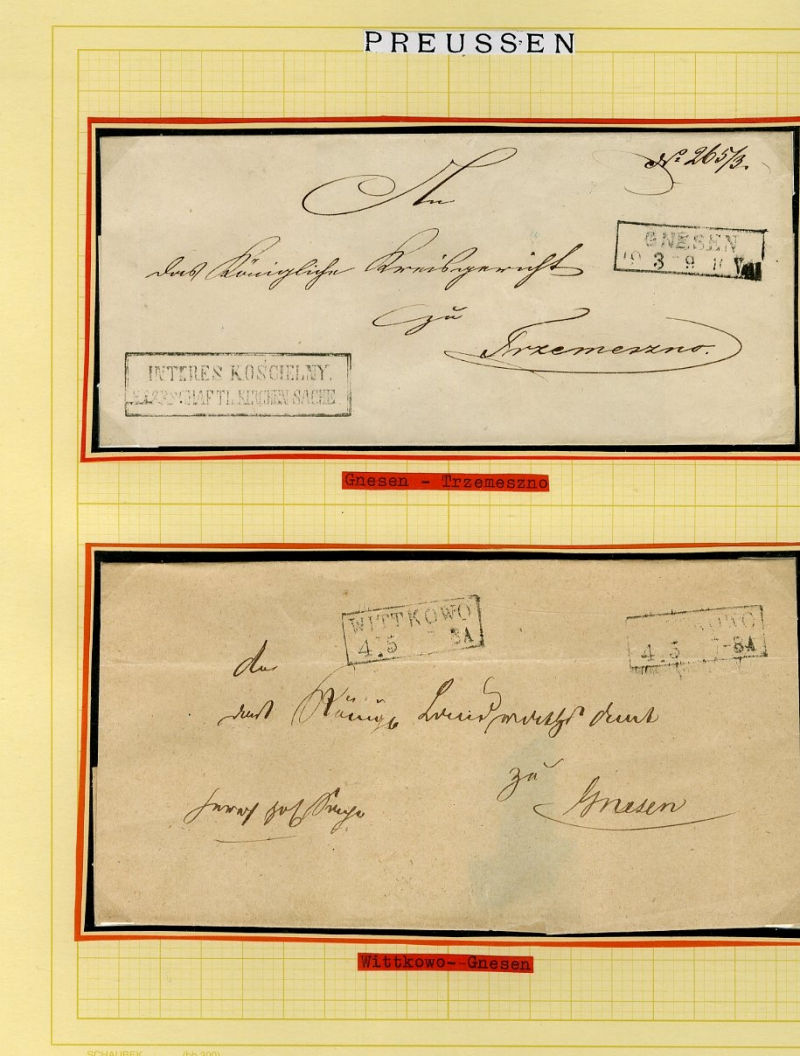 PREUSSEN
No 265/3.
An
GNESEN
das Königliche Kreisgericht
19 3 9 11 Vm
zu
Trzemeszno.
INTERES KOSCIELNY.
KIRCHEN-SACHE
Gnesen - Trzemeszno
WITTKOWO
4.5 7-8A
OWO
4.5 7-8A
das Königl Landrathsamt
zu
Gnesen
Wittkowo--Gnesen
SCHAUBEK (bb 300)